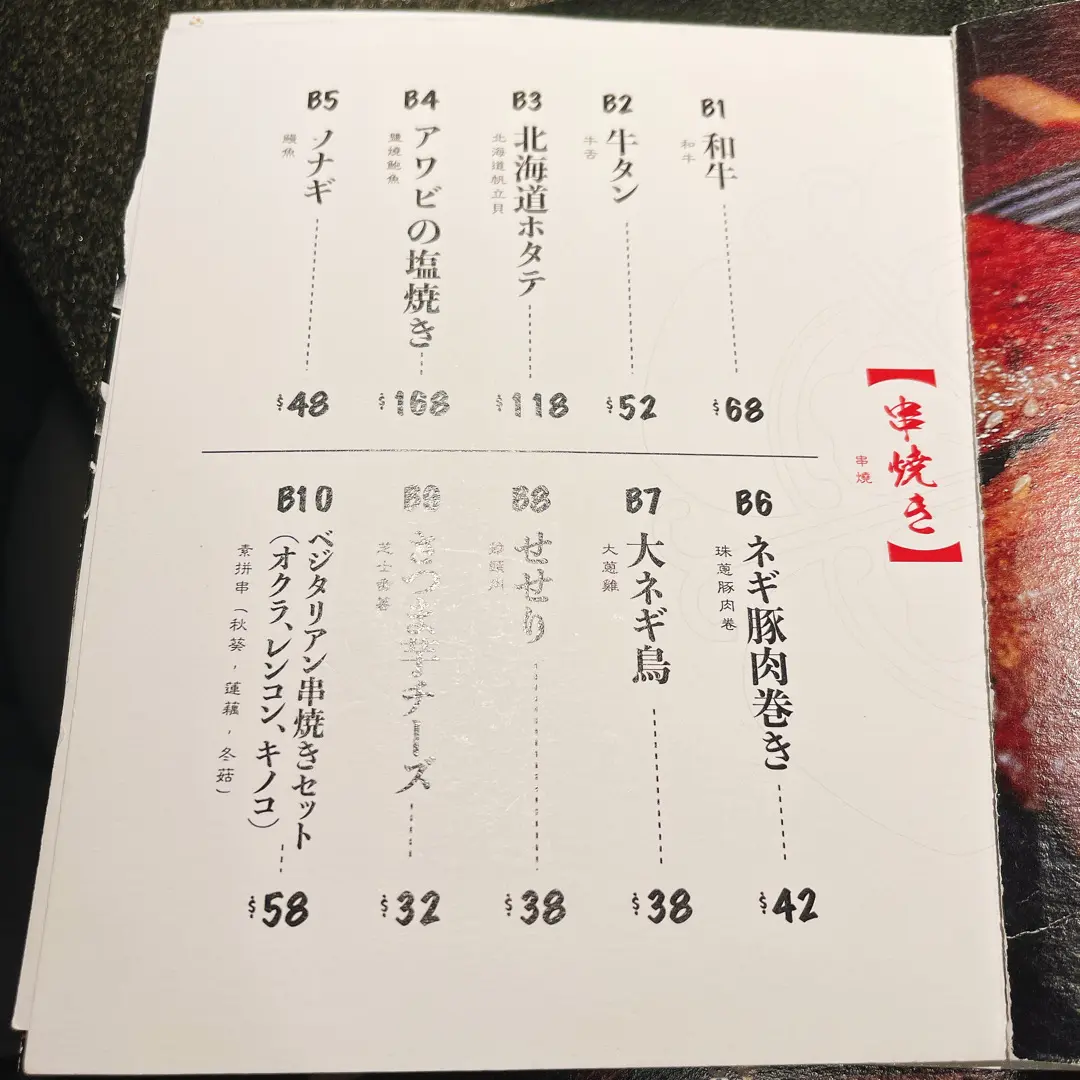 【串焼き】
串燒
B1
和牛
和牛
$68
B2
牛タン
牛舌
$52
B3
北海道ホタテ
北海道帆立貝
$118
B4
アワビの塩焼き
鹽燒鮑魚
$168
B5
ソナギ
鰻魚
$48
B6
ネギ豚肉巻き
珠蔥豚肉卷
$42
B7
大ネギ鳥
大蔥雞
$38
B8
せせり
$38
B9
さつま芋チーズ
芝士
$32
B10
ベジタリアン串焼きセット
(オクラ、レンコン、キノコ)
素拼串(秋葵,蓮藕,冬菇)
$58